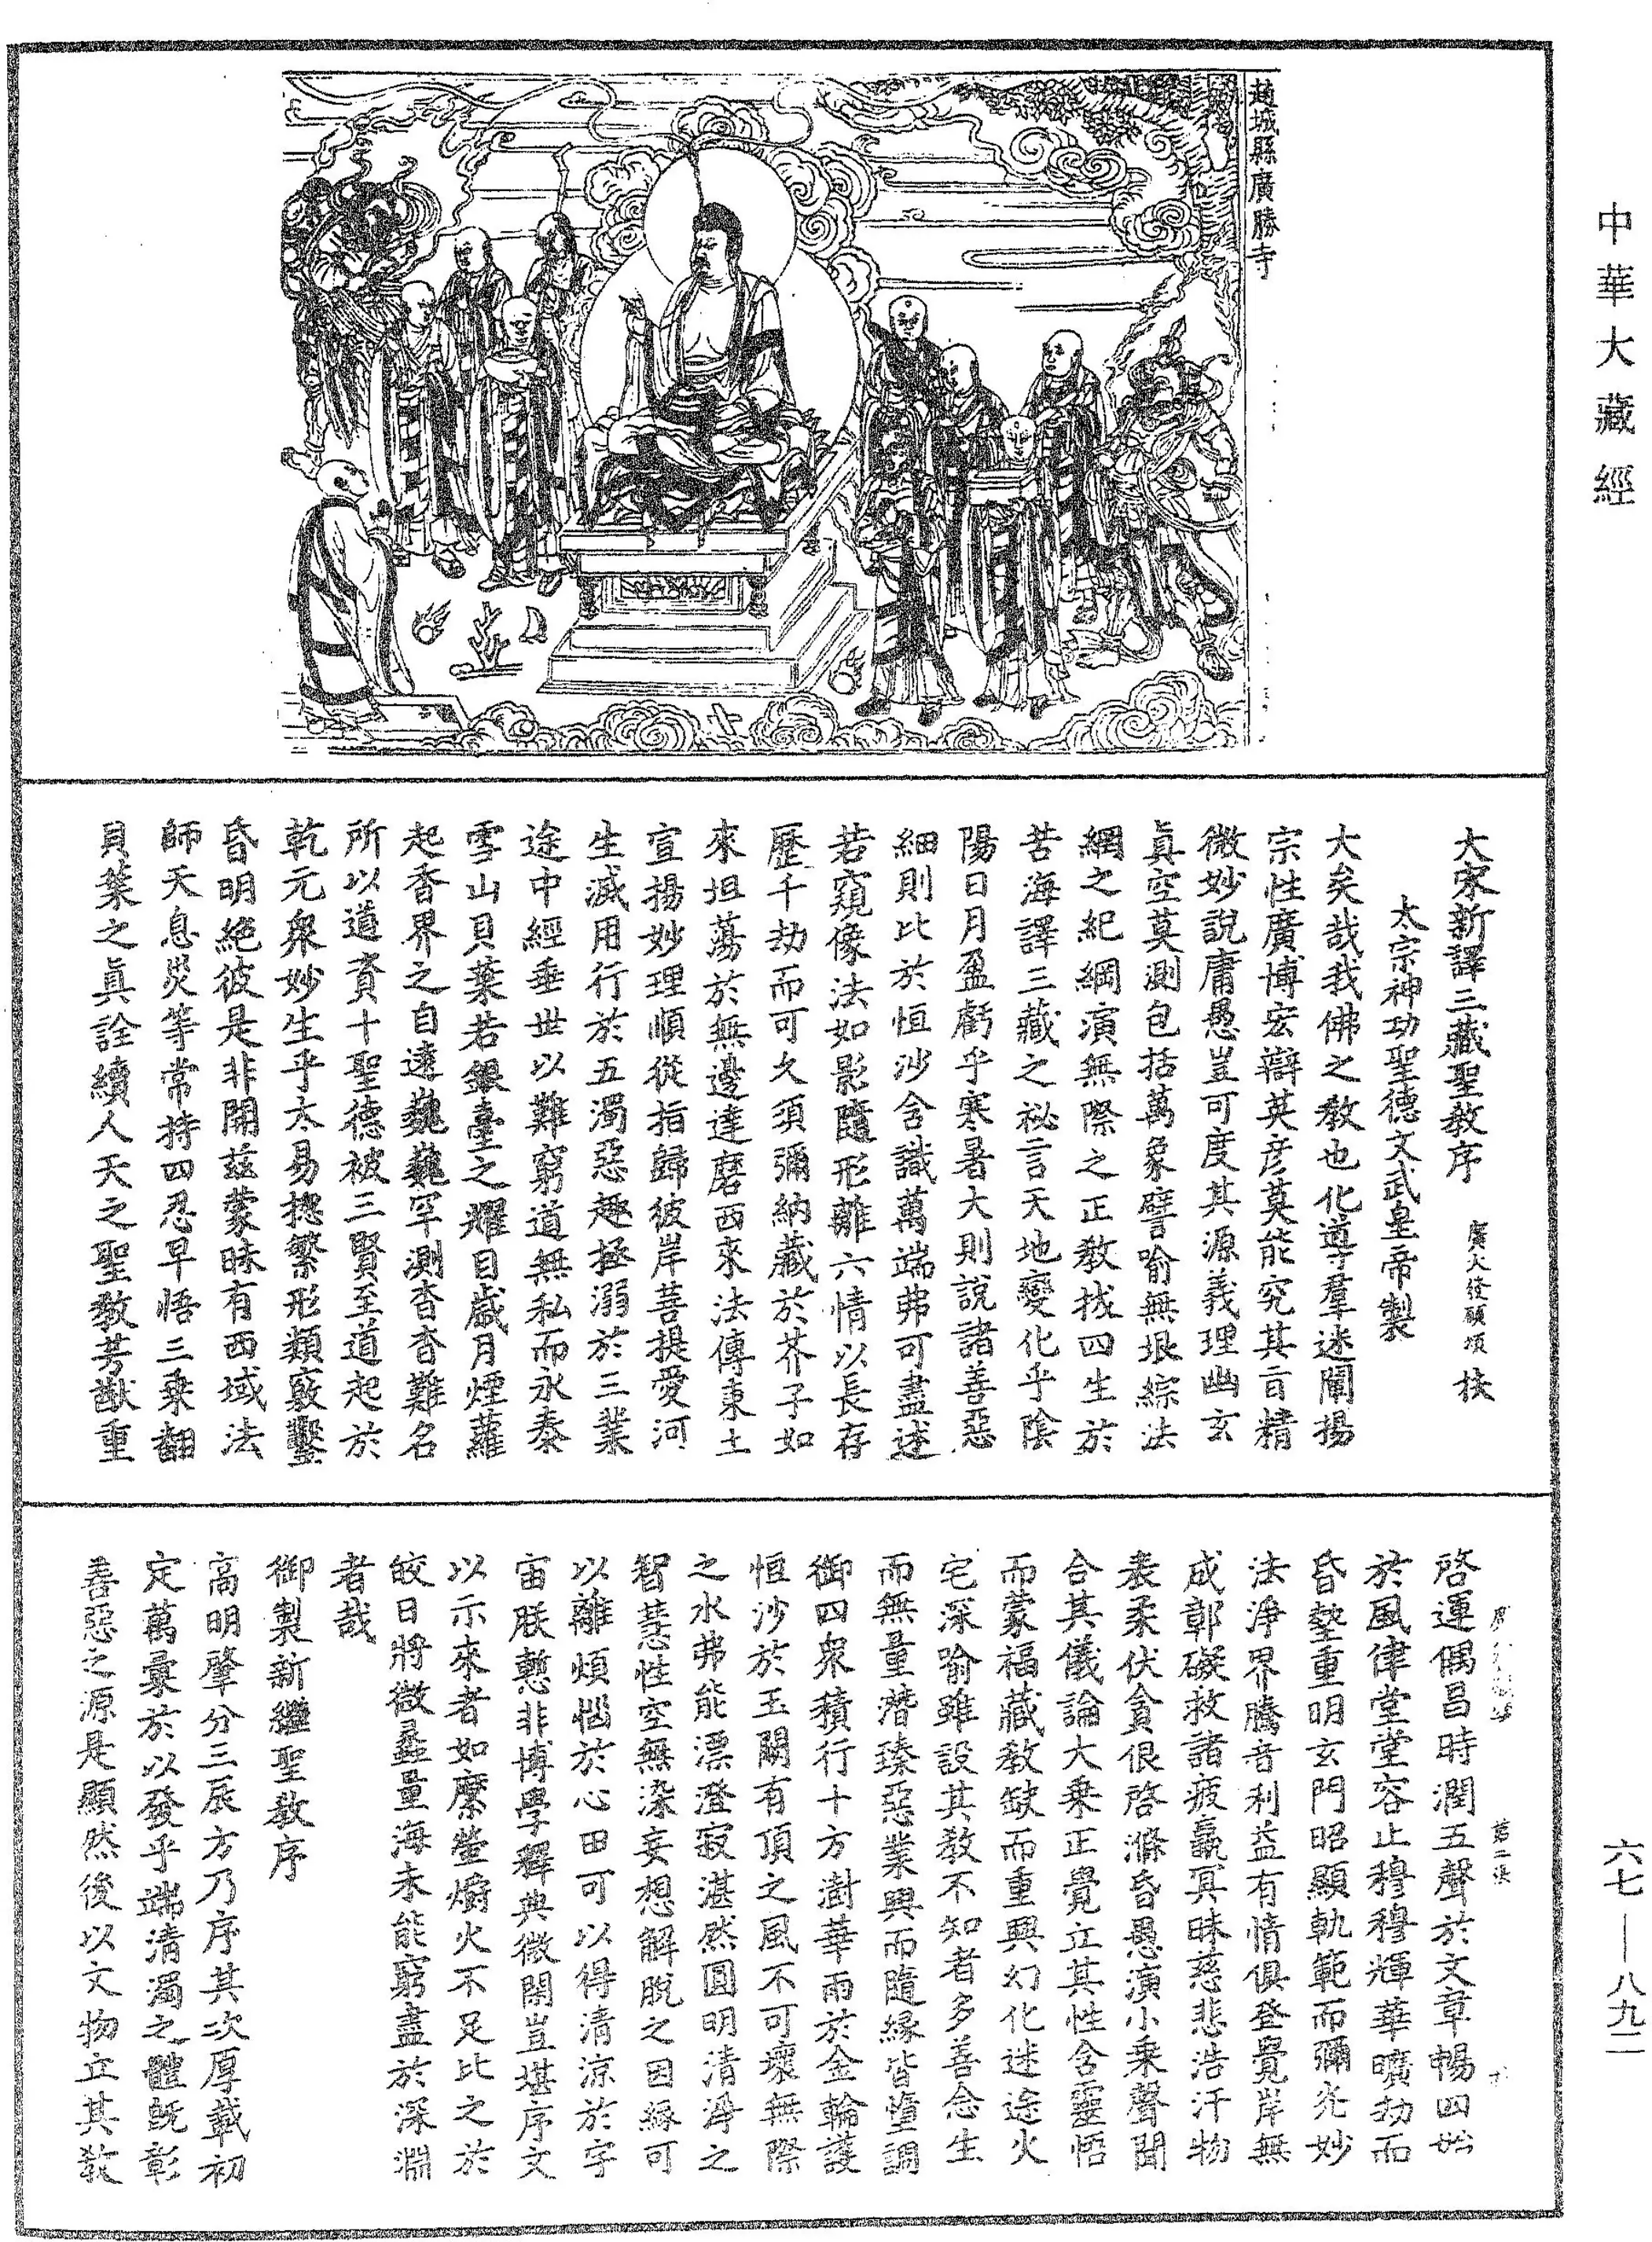 中華大藏經
趙城縣廣勝寺
大宋新譯三藏聖教序 廣大發願頌 扶
太宗神功聖德文武皇帝製
大矣哉我佛之教也化導羣迷闡揚
宗性廣博宏辯英彦莫能究其旨精
微妙說庸愚豈可度其源義理幽玄
真空莫測包括萬象譬喻無垠綜法
網之紀綱演無際之正教拔四生於
苦海譯三藏之祕言天地變化乎陰
陽日月盈虧乎寒暑大則說諸善惡
細則比於恒沙含識萬端弗可盡述
若窺像法如影隨形離六情以長存
歷千劫而可久須彌納藏於芥子如
來坦蕩於無邊達磨西來法傳東土
宣揚妙理順從指歸彼岸菩提愛河
生滅用行於五濁惡趣極溺於三業
途中經垂世以難窮道無私而永泰
雪山貝葉若銀臺之耀目歲月煙蘿
起香界之自遠巍巍罕測杳杳難名
所以道資十聖德被三賢至道起於
乾元衆妙生乎太易揔繁形類竅鑿
昏明絕彼是非開茲蒙昧有西域法
師天息災等常持四忍早悟三乘翻
貝葉之真詮續人天之聖教芳猷重
啓運偶昌時潤五聲於文章暢四始
於風律堂堂容止穆穆輝華曠劫而
昏墊重明玄門昭顯軌範而彌光妙
法淨界騰音利益有情俱登覺岸無
成鄣礙救諸疲羸冥昧慈悲浩汗物
表柔伏貪很啓滌昏愚演小乘聲聞
合其儀論大乘正覺立其性含靈悟
而蒙福藏教缺而重興幻化迷途火
宅深喻雖設其教不知者多善念生
而無量潛臻惡業興而隨緣皆墮調
御四衆積行十方澍華雨於金輪護
恒沙於玉闕有頂之風不可壞無際
之水弗能漂澄寂湛然圓明清淨之
智慧性空無染妄想解脫之因緣可
以離煩惱於心田可以得清涼於宇
宙朕慙非博學釋典微閑豈堪序文
以示來者如縻螢爝火不足比之於
皎日將微蠡量海未能窮盡於深淵
者哉
御製新繼聖教序
高明肇分三辰方乃序其次厚載初
定萬彙於以發乎端清濁之體旣彰
善惡之源是顯然後以文物立其教
第二張
六七—八九二